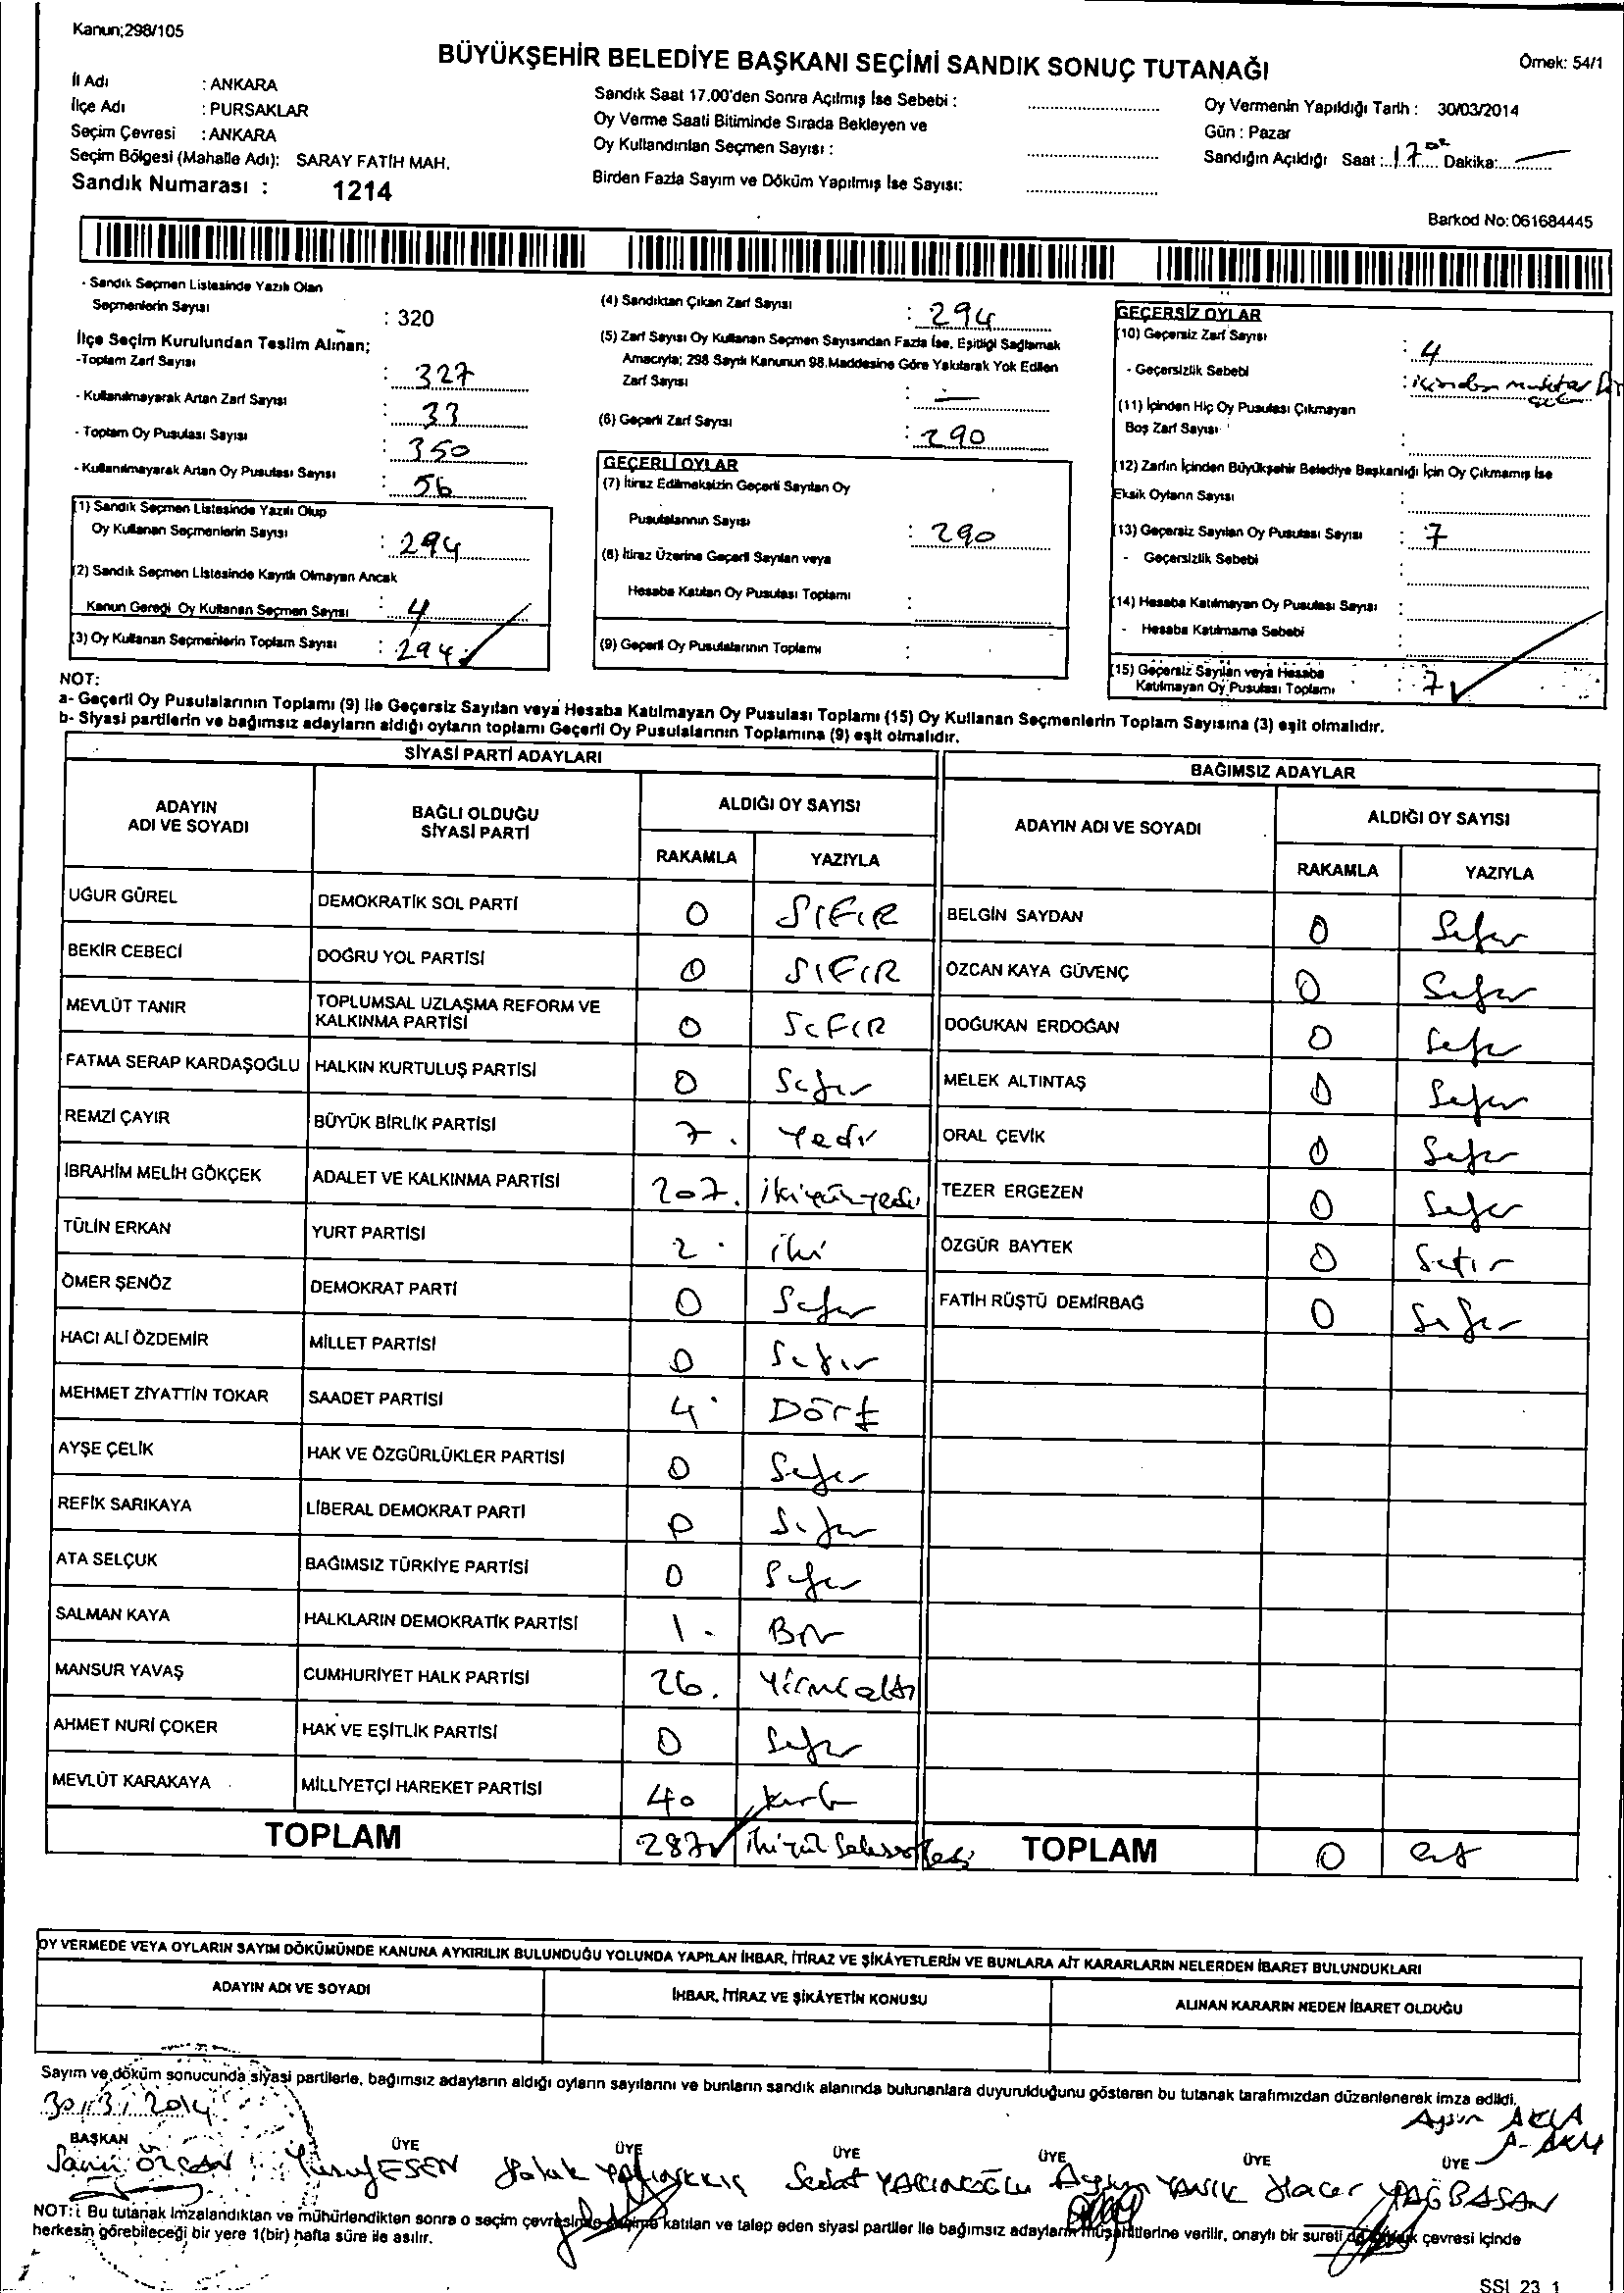 Kanun;298/105
BÜYÜKŞEHİR BELEDİYE BAŞKANI SEÇİMİ SANDIK SONUÇ TUTANAĞI
Örnek: 54/1
İl Adı : ANKARA
İlçe Adı : PURSAKLAR
Seçim Çevresi : ANKARA
Seçim Bölgesi (Mahalle Adı): SARAY FATİH MAH.
Sandık Numarası : 1214
Sandık Saat 17.00'den Sonra Açılmış İse Sebebi :
Oy Verme Saati Bitiminde Sırada Bekleyen ve
Oy Kullandırılan Seçmen Sayısı :
Birden Fazla Sayım ve Döküm Yapılmış İse Sayısı:
Oy Vermenin Yapıldığı Tarih : 30/03/2014
Gün : Pazar
Sandığın Açıldığı Saat : 17 00 Dakika:
Barkod No: 061684445
- Sandık Seçmen Listesinde Yazılı Olan
Seçmenlerin Sayısı : 320
İlçe Seçim Kurulundan Teslim Alınan;
-Toplam Zarf Sayısı : 327
- Kullanılmayarak Artan Zarf Sayısı : 33
- Toplam Oy Pusulası Sayısı : 350
- Kullanılmayarak Artan Oy Pusulası Sayısı : 56
(1) Sandık Seçmen Listesinde Yazılı Olup
Oy Kullanan Seçmenlerin Sayısı : 294
(2) Sandık Seçmen Listesinde Kayıtlı Olmayan Ancak
Kanun Gereği Oy Kullanan Seçmen Sayısı : 4
(3) Oy Kullanan Seçmenlerin Toplam Sayısı : 294
(4) Sandıktan Çıkan Zarf Sayısı : 294
(5) Zarf Sayısı Oy Kullanan Seçmen Sayısından Fazla İse, Eşitliği Sağlamak
Amacıyla; 298 Sayılı Kanunun 98.Maddesine Göre Yakılarak Yok Edilen
Zarf Sayısı : —
(6) Geçerli Zarf Sayısı : 290
GEÇERLİ OYLAR
(7) İtiraz Edilmeksizin Geçerli Sayılan Oy
Pusulalarının Sayısı : 290
(8) İtiraz Üzerine Geçerli Sayılan veya
Hesaba Katılan Oy Pusulası Toplamı :
(9) Geçerli Oy Pusulalarının Toplamı :
GEÇERSİZ OYLAR
(10) Geçersiz Zarf Sayısı : 4
- Geçersizlik Sebebi : içinden muhtar
(11) İçinden Hiç Oy Pusulası Çıkmayan
Boş Zarf Sayısı :
(12) Zarfın İçinden Büyükşehir Belediye Başkanlığı İçin Oy Çıkmamış İse
Eksik Oyların Sayısı :
(13) Geçersiz Sayılan Oy Pusulası Sayısı : 7
- Geçersizlik Sebebi :
(14) Hesaba Katılmayan Oy Pusulası Sayısı :
- Hesaba Katılmama Sebebi :
(15) Geçersiz Sayılan veya Hesaba
Katılmayan Oy Pusulası Toplamı : 7
NOT:
a- Geçerli Oy Pusulalarının Toplamı (9) ile Geçersiz Sayılan veya Hesaba Katılmayan Oy Pusulası Toplamı (15) Oy Kullanan Seçmenlerin Toplam Sayısına (3) eşit olmalıdır.
b- Siyasi partilerin ve bağımsız adayların aldığı oyların toplamı Geçerli Oy Pusulalarının Toplamına (9) eşit olmalıdır.
SİYASİ PARTİ ADAYLARI
ADAYIN ADI VE SOYADI BAĞLI OLDUĞU SİYASİ PARTİ ALDIĞI OY SAYISI
RAKAMLA YAZIYLA
UĞUR GÜREL DEMOKRATİK SOL PARTİ 0 SIFIR
BEKİR CEBECİ DOĞRU YOL PARTİSİ 0 SIFIR
MEVLÜT TANIR TOPLUMSAL UZLAŞMA REFORM VE KALKINMA PARTİSİ 0 SIFIR
FATMA SERAP KARDAŞOĞLU HALKIN KURTULUŞ PARTİSİ 0 Sıfır
REMZİ ÇAYIR BÜYÜK BİRLİK PARTİSİ 7. Yedi
İBRAHİM MELİH GÖKÇEK ADALET VE KALKINMA PARTİSİ 207. ikiyüzyedi
TÜLİN ERKAN YURT PARTİSİ 2. iki
ÖMER ŞENÖZ DEMOKRAT PARTİ 0 Sıfır
HACI ALİ ÖZDEMİR MİLLET PARTİSİ 0 Sıfır
MEHMET ZİYATTİN TOKAR SAADET PARTİSİ 4. Dört
AYŞE ÇELİK HAK VE ÖZGÜRLÜKLER PARTİSİ 0 Sıfır
REFİK SARIKAYA LİBERAL DEMOKRAT PARTİ 0 Sıfır
ATA SELÇUK BAĞIMSIZ TÜRKİYE PARTİSİ 0 Sıfır
SALMAN KAYA HALKLARIN DEMOKRATİK PARTİSİ 1. Bir
MANSUR YAVAŞ CUMHURİYET HALK PARTİSİ 26. Yirmialtı
AHMET NURİ ÇOKER HAK VE EŞİTLİK PARTİSİ 0 Sıfır
MEVLÜT KARAKAYA MİLLİYETÇİ HAREKET PARTİSİ 40 kırk
TOPLAM 287 ikiyüz Seksenyedi
BAĞIMSIZ ADAYLAR
ADAYIN ADI VE SOYADI ALDIĞI OY SAYISI
RAKAMLA YAZIYLA
BELGİN SAYDAN 0 Sıfır
ÖZCAN KAYA GÜVENÇ 0 Sıfır
DOĞUKAN ERDOĞAN 0 Sıfır
MELEK ALTINTAŞ 0 Sıfır
ORAL ÇEVİK 0 Sıfır
TEZER ERGEZEN 0 Sıfır
ÖZGÜR BAYTEK 0 Sıfır
FATİH RÜŞTÜ DEMİRBAĞ 0 Sıfır
TOPLAM 0
OY VERMEDE VEYA OYLARIN SAYIM DÖKÜMÜNDE KANUNA AYKIRILIK BULUNDUĞU YOLUNDA YAPILAN İHBAR, İTİRAZ VE ŞİKÂYETLERİN VE BUNLARA AİT KARARLARIN NELERDEN İBARET BULUNDUKLARI
ADAYIN ADI VE SOYADI İHBAR, İTİRAZ VE ŞİKÂYETİN KONUSU ALINAN KARARIN NEDEN İBARET OLDUĞU
Sayım ve döküm sonucunda siyasi partilerle, bağımsız adayların aldığı oyların sayılarını ve bunların sandık alanında bulunanlara duyurulduğunu gösteren bu tutanak tarafımızdan düzenlenerek imza edildi.
30/3/2014
BAŞKAN ÜYE ÜYE ÜYE ÜYE ÜYE ÜYE
ÖZCAN Yusuf ESEN Haluk Sedat Aysun YANIK Hacer YAĞBASAN
NOT: Bu tutanak imzalandıktan ve mühürlendikten sonra o seçim çevresinde seçime katılan ve talep eden siyasi partiler ile bağımsız adayların müşahitlerine verilir, onaylı bir sureti de sandık çevresi içinde
herkesin görebileceği bir yere 1(bir) hafta süre ile asılır.
SSI_23_1